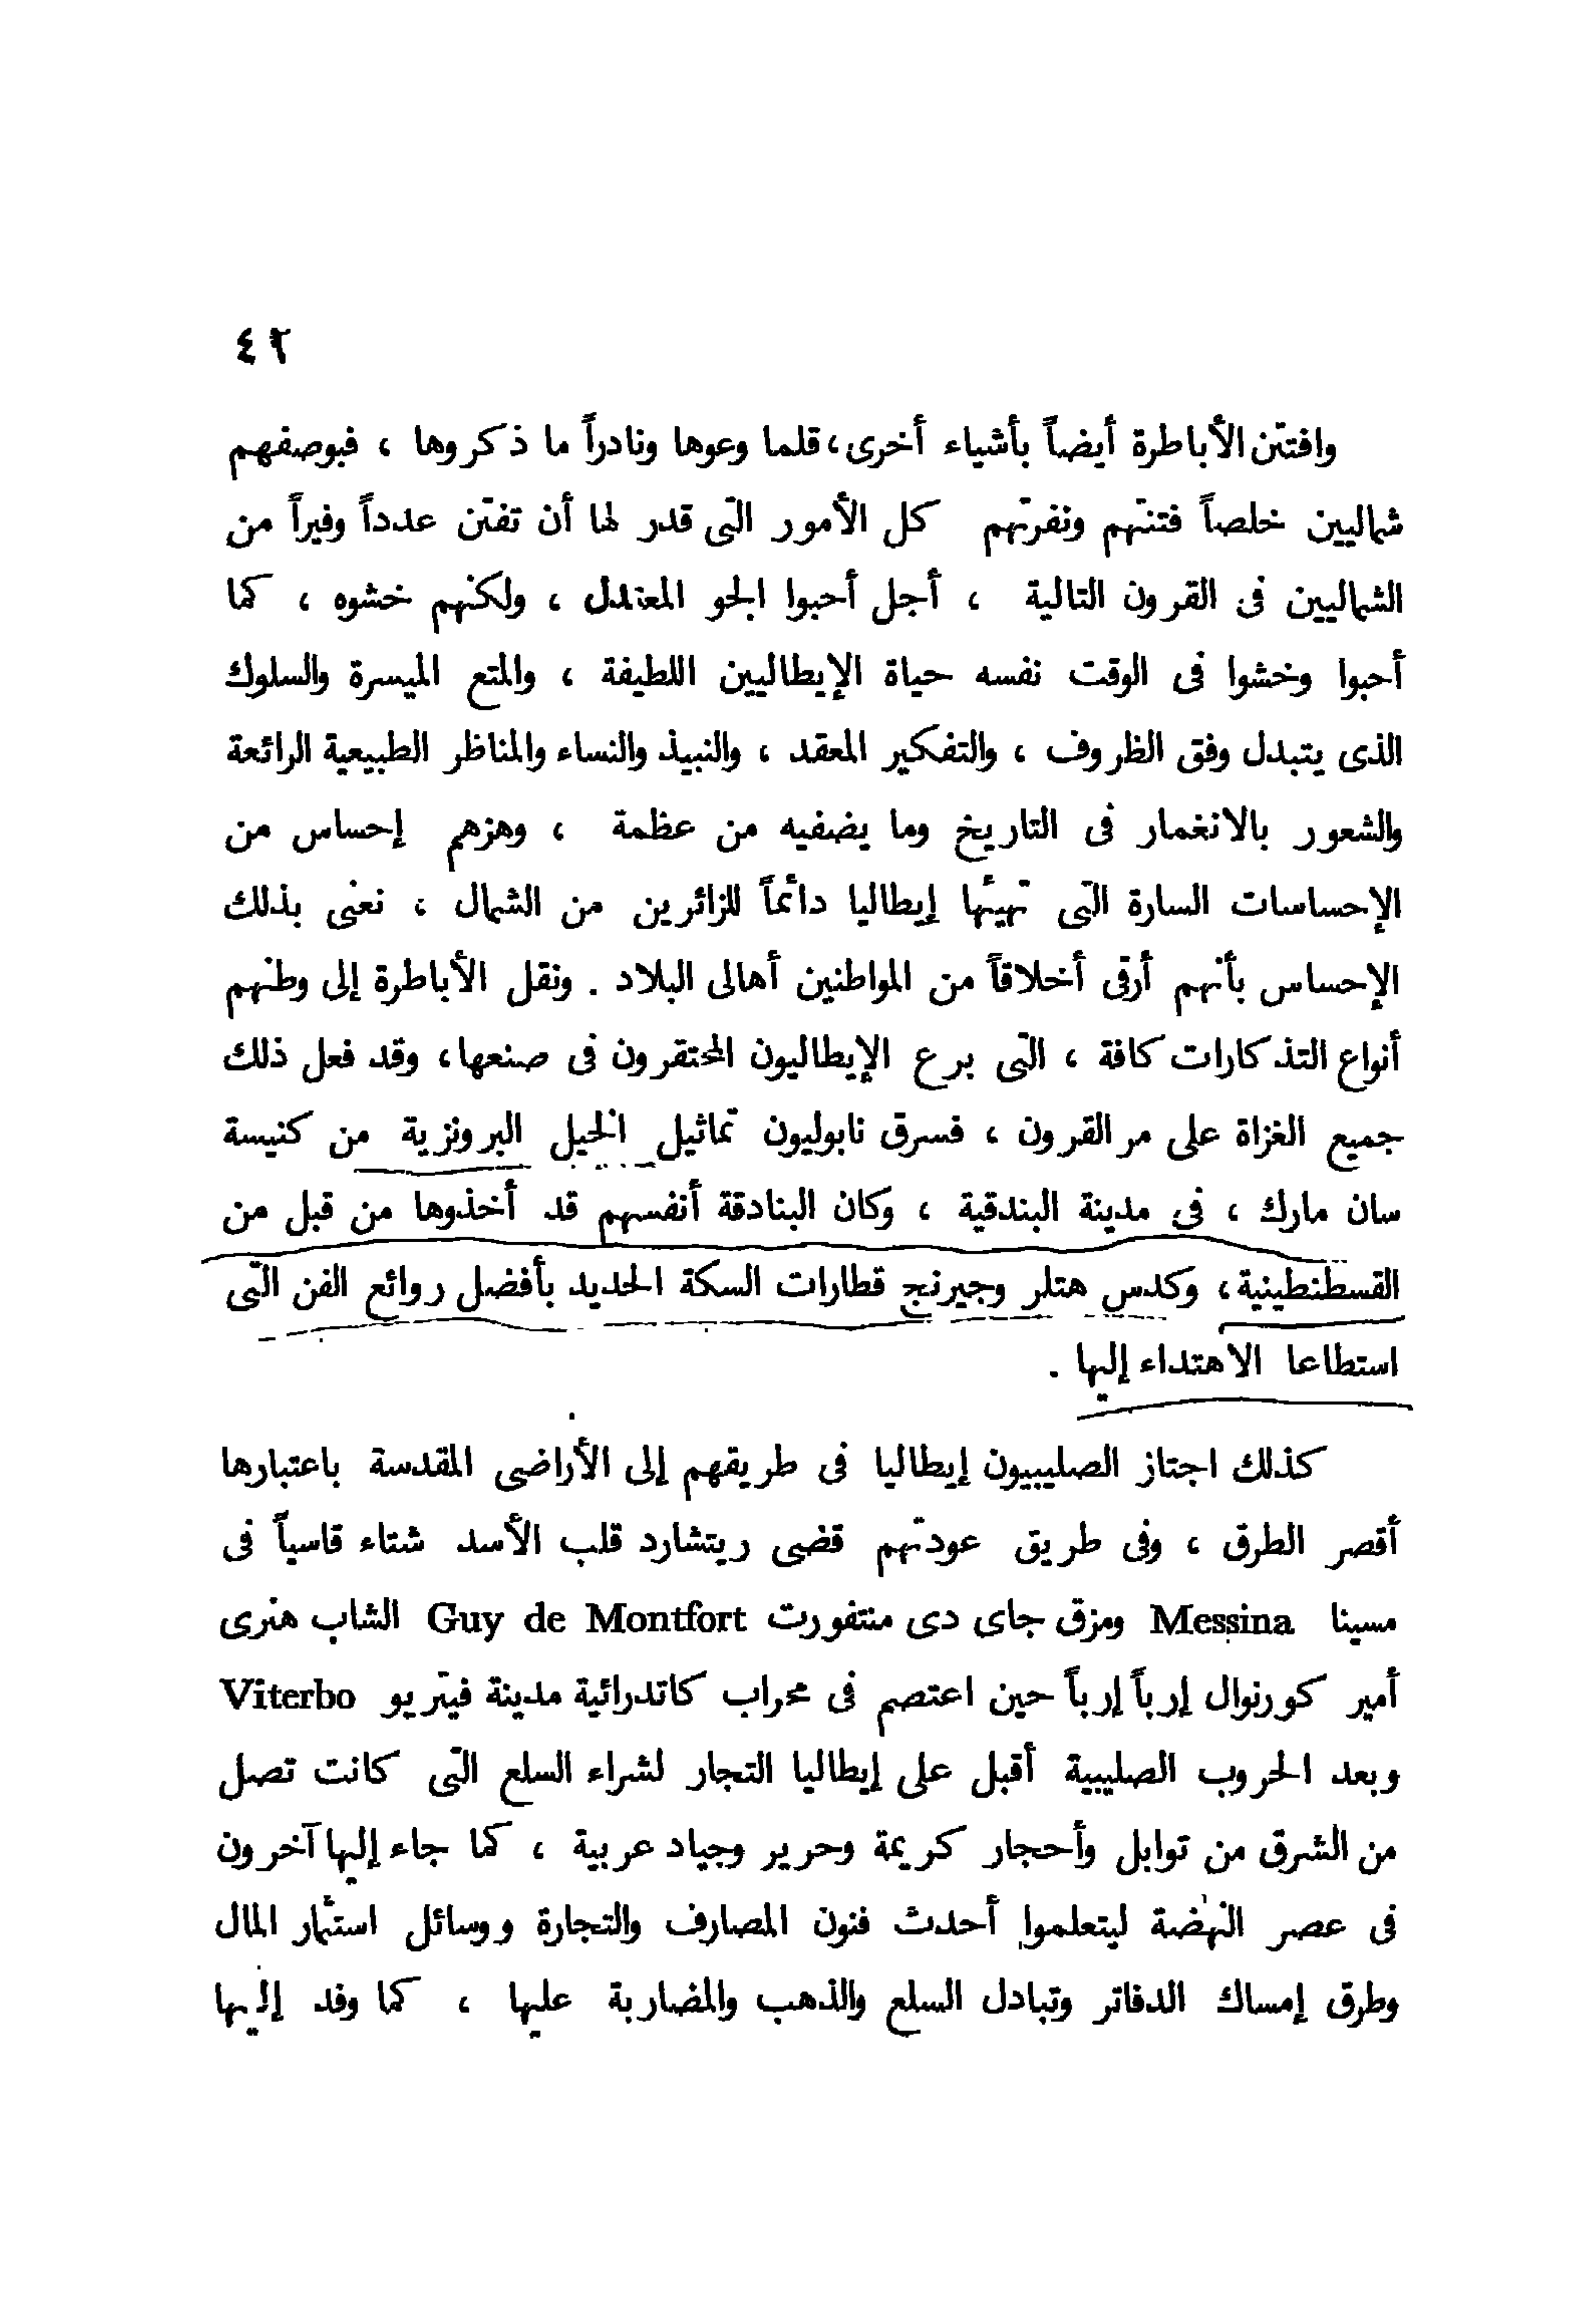 ٤٢
وافتتن الأباطرة أيضاً بأشياء أخرى، قلما وعوها ونادراً ما ذكروها ، فبوصفهم
شماليين خلصاً فتنتهم ونفرتهم كل الأمور التى قدر لها أن تفتن عدداً وفيراً من
الشماليين فى القرون التالية ، أجل أحبوا الجو المعتدل ، ولكنهم خشوه ، كما
أحبوا وخشوا فى الوقت نفسه حياة الإيطاليين اللطيفة ، والمتع الميسرة والسلوك
الذى يتبدل وفق الظروف ، والتفكير المعقد ، والنبيذ والنساء والمناظر الطبيعية الرائعة
والشعور بالانغمار فى التاريخ وما يضفيه من عظمة ، وهزهم إحساس من
الإحساسات السارة التى تهيئها إيطاليا دائماً للزائرين من الشمال ، نعنى بذلك
الإحساس بأنهم أرقى أخلاقاً من المواطنين أهالى البلاد . ونقل الأباطرة إلى وطنهم
أنواع التذكارات كافة ، التى برع الإيطاليون المحتقرون فى صنعها ، وقد فعل ذلك
جميع الغزاة على مر القرون ، فسرق نابوليون تماثيل الخيل البرونزية من كنيسة
سان مارك ، فى مدينة البندقية ، وكان البنادقة أنفسهم قد أخذوها من قبل من
القسطنطينية ، وكدس هتلر وجيرنج قطارات السكة الحديد بأفضل روائع الفن التى
استطاعا الاهتداء إليها .
كذلك اجتاز الصليبيون إيطاليا فى طريقهم إلى الأراضى المقدسة باعتبارها
أقصر الطرق ، وفى طريق عودتهم قضى ريتشارد قلب الأسد شتاء قاسياً فى
مسينا Messina ومزق جاى دى منتفورت Guy de Montfort الشاب هنرى
أمير كورنوال إرباً إرباً حين اعتصم فى محراب كاتدرائية مدينة فيتربو Viterbo
وبعد الحروب الصليبية أقبل على إيطاليا التجار لشراء السلع التى كانت تصل
من الشرق من توابل وأحجار كريمة وحرير وجياد عربية ، كما جاء إليها آخرون
فى عصر النهضة ليتعلموا أحدث فنون المصارف والتجارة ووسائل استثمار المال
وطرق إمساك الدفاتر وتبادل السلع والذهب والمضاربة عليها ، كما وفد إليها